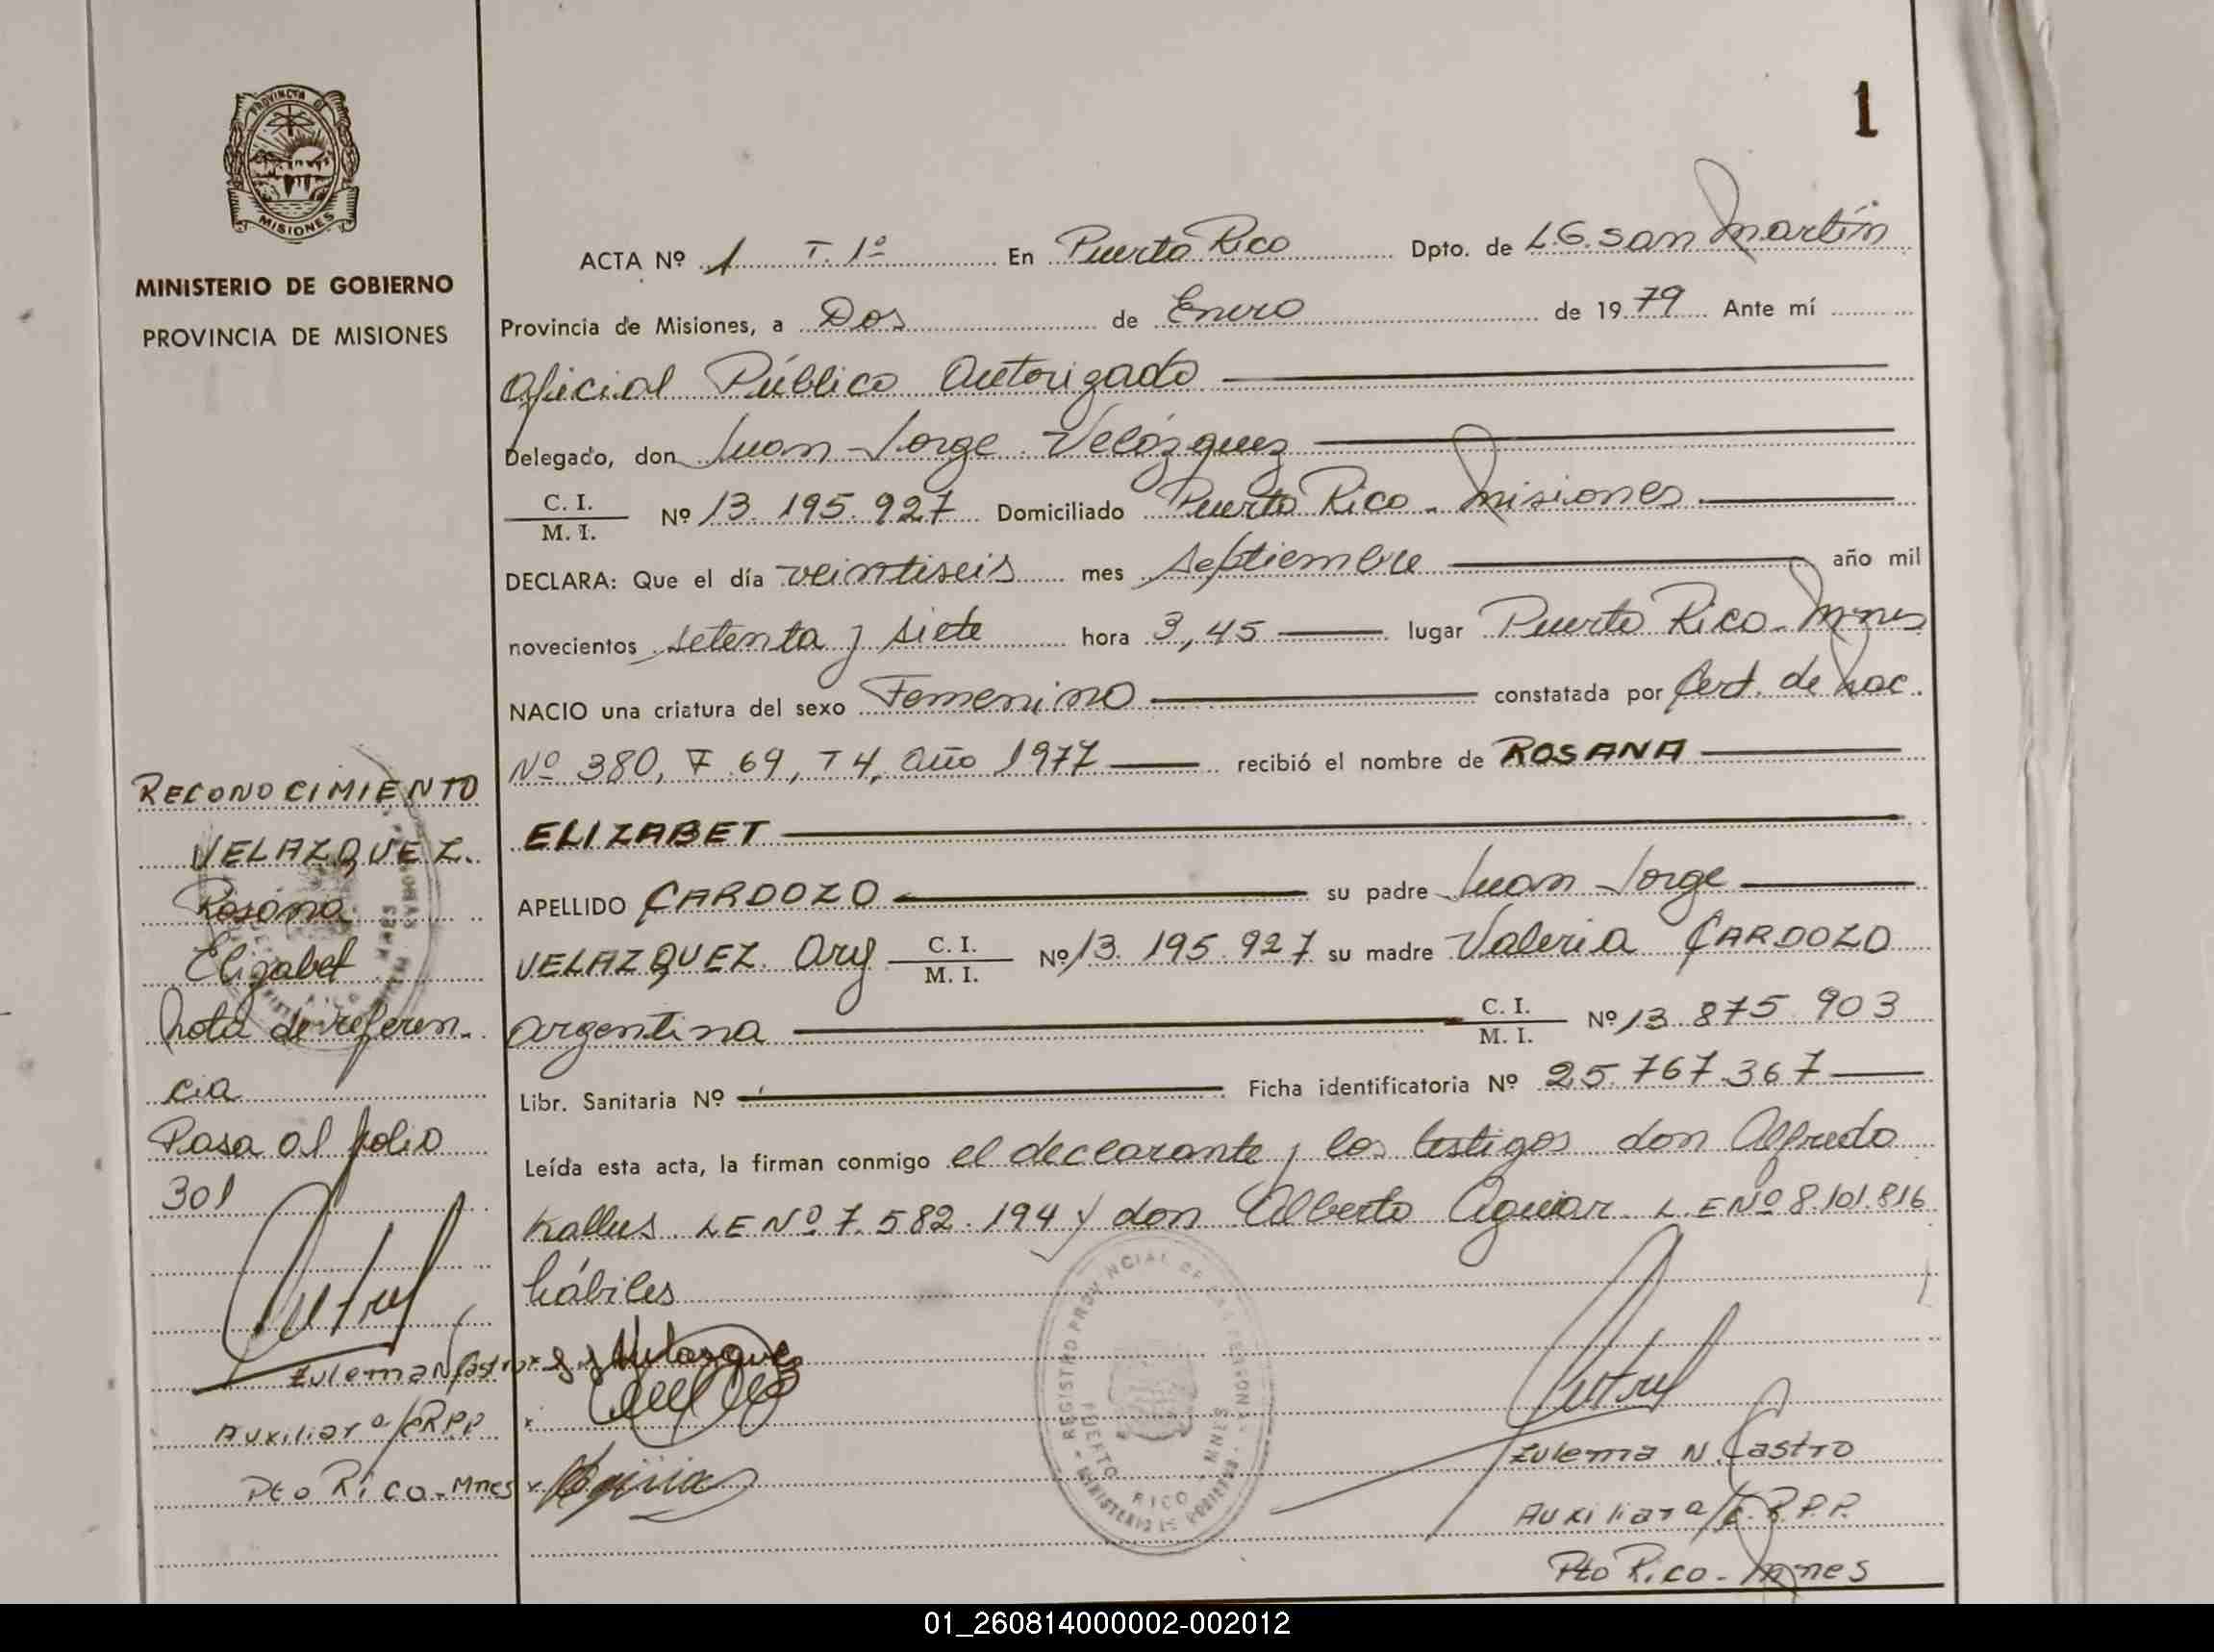 1
PROVINCIA DE
MISIONES
MINISTERIO DE GOBIERNO
PROVINCIA DE MISIONES
RECONOCIMIENTO
VELAZQUEZ.
Rosana
Elizabet
Nota de referen-
cia
Pasa al folio
301
Zulema N. Castro
Auxiliar a/c R.P.P
Pto Rico - Mnes
ACTA Nº 1 T. 1º En Puerto Rico Dpto. de L.G. San Martín
Provincia de Misiones, a Dos de Enero de 1979 Ante mí
Oficial Público Autorizado
Delegado, don Juan Jorge Velázquez
C. I.
M. I. Nº 13.195.927 Domiciliado Puerto Rico - Misiones
DECLARA: Que el día veintiseis mes septiembre año mil
novecientos setenta y siete hora 3,45 lugar Puerto Rico - Mnes
NACIO una criatura del sexo Femenino constatada por Cert. de Nac.
Nº 380, F 69, T 4, año 1977 recibió el nombre de ROSANA
ELIZABET
APELLIDO CARDOZO su padre Juan Jorge
VELAZQUEZ Arg C. I.
M. I. Nº 13.195.927 su madre Valeria CARDOZO
argentina C. I.
M. I. Nº 13.875.903
Libr. Sanitaria Nº Ficha identificatoria Nº 25.767.367
Leída esta acta, la firman conmigo el declarante y los testigos don Alfredo
Kallus L E Nº 7.582.194 y don Alberto Aguiar L. E Nº 8.101.816
hábiles
REGISTRO PROVINCIAL DE LAS PERSONAS
PUERTO RICO - MNES
MINISTERIO DE GOBIERNO
Zulema N. Castro
Auxiliar a/c R.P.P.
Pto Rico - Mnes
01_260814000002-002012